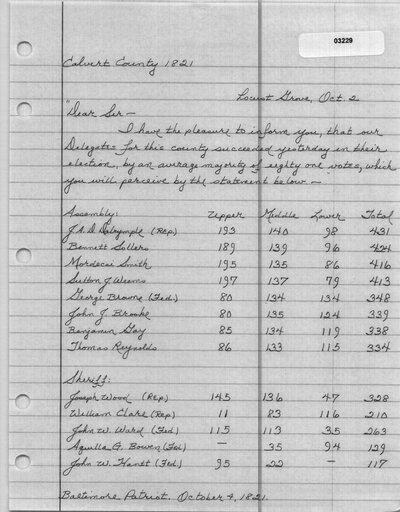 03229
Calvert County 1821
Locust Grove, Oct. 2
"Dear Sir -
I have the pleasure to inform you, that our
Delegates for this county succeeded yesterday in their
election, by an average majority of eighty one votes, which
you will perceive by the statement below. -
Assembly: Upper Middle Lower Total
J. A. D. Dalrymple (Rep) 193 140 98 431
Bennett Sollers 189 139 96 424
Mordecai Smith 195 135 86 416
Sutton J Weems 197 137 79 413
George Browne (Fed.) 80 134 134 348
John J. Brooke 80 135 124 339
Benjamin Gay 85 134 119 338
Thomas Reynolds 86 133 115 334
Sheriff:
Joseph Wood (Rep) 145 136 47 328
William Clare (Rep) 11 83 116 210
John W. Ward (Fed.) 115 113 35 263
Aquilla G. Bowen (Fed) — 35 94 129
John W. Hantt (Fed.) 95 22 — 117
Baltimore Patriot. October 4, 1821.